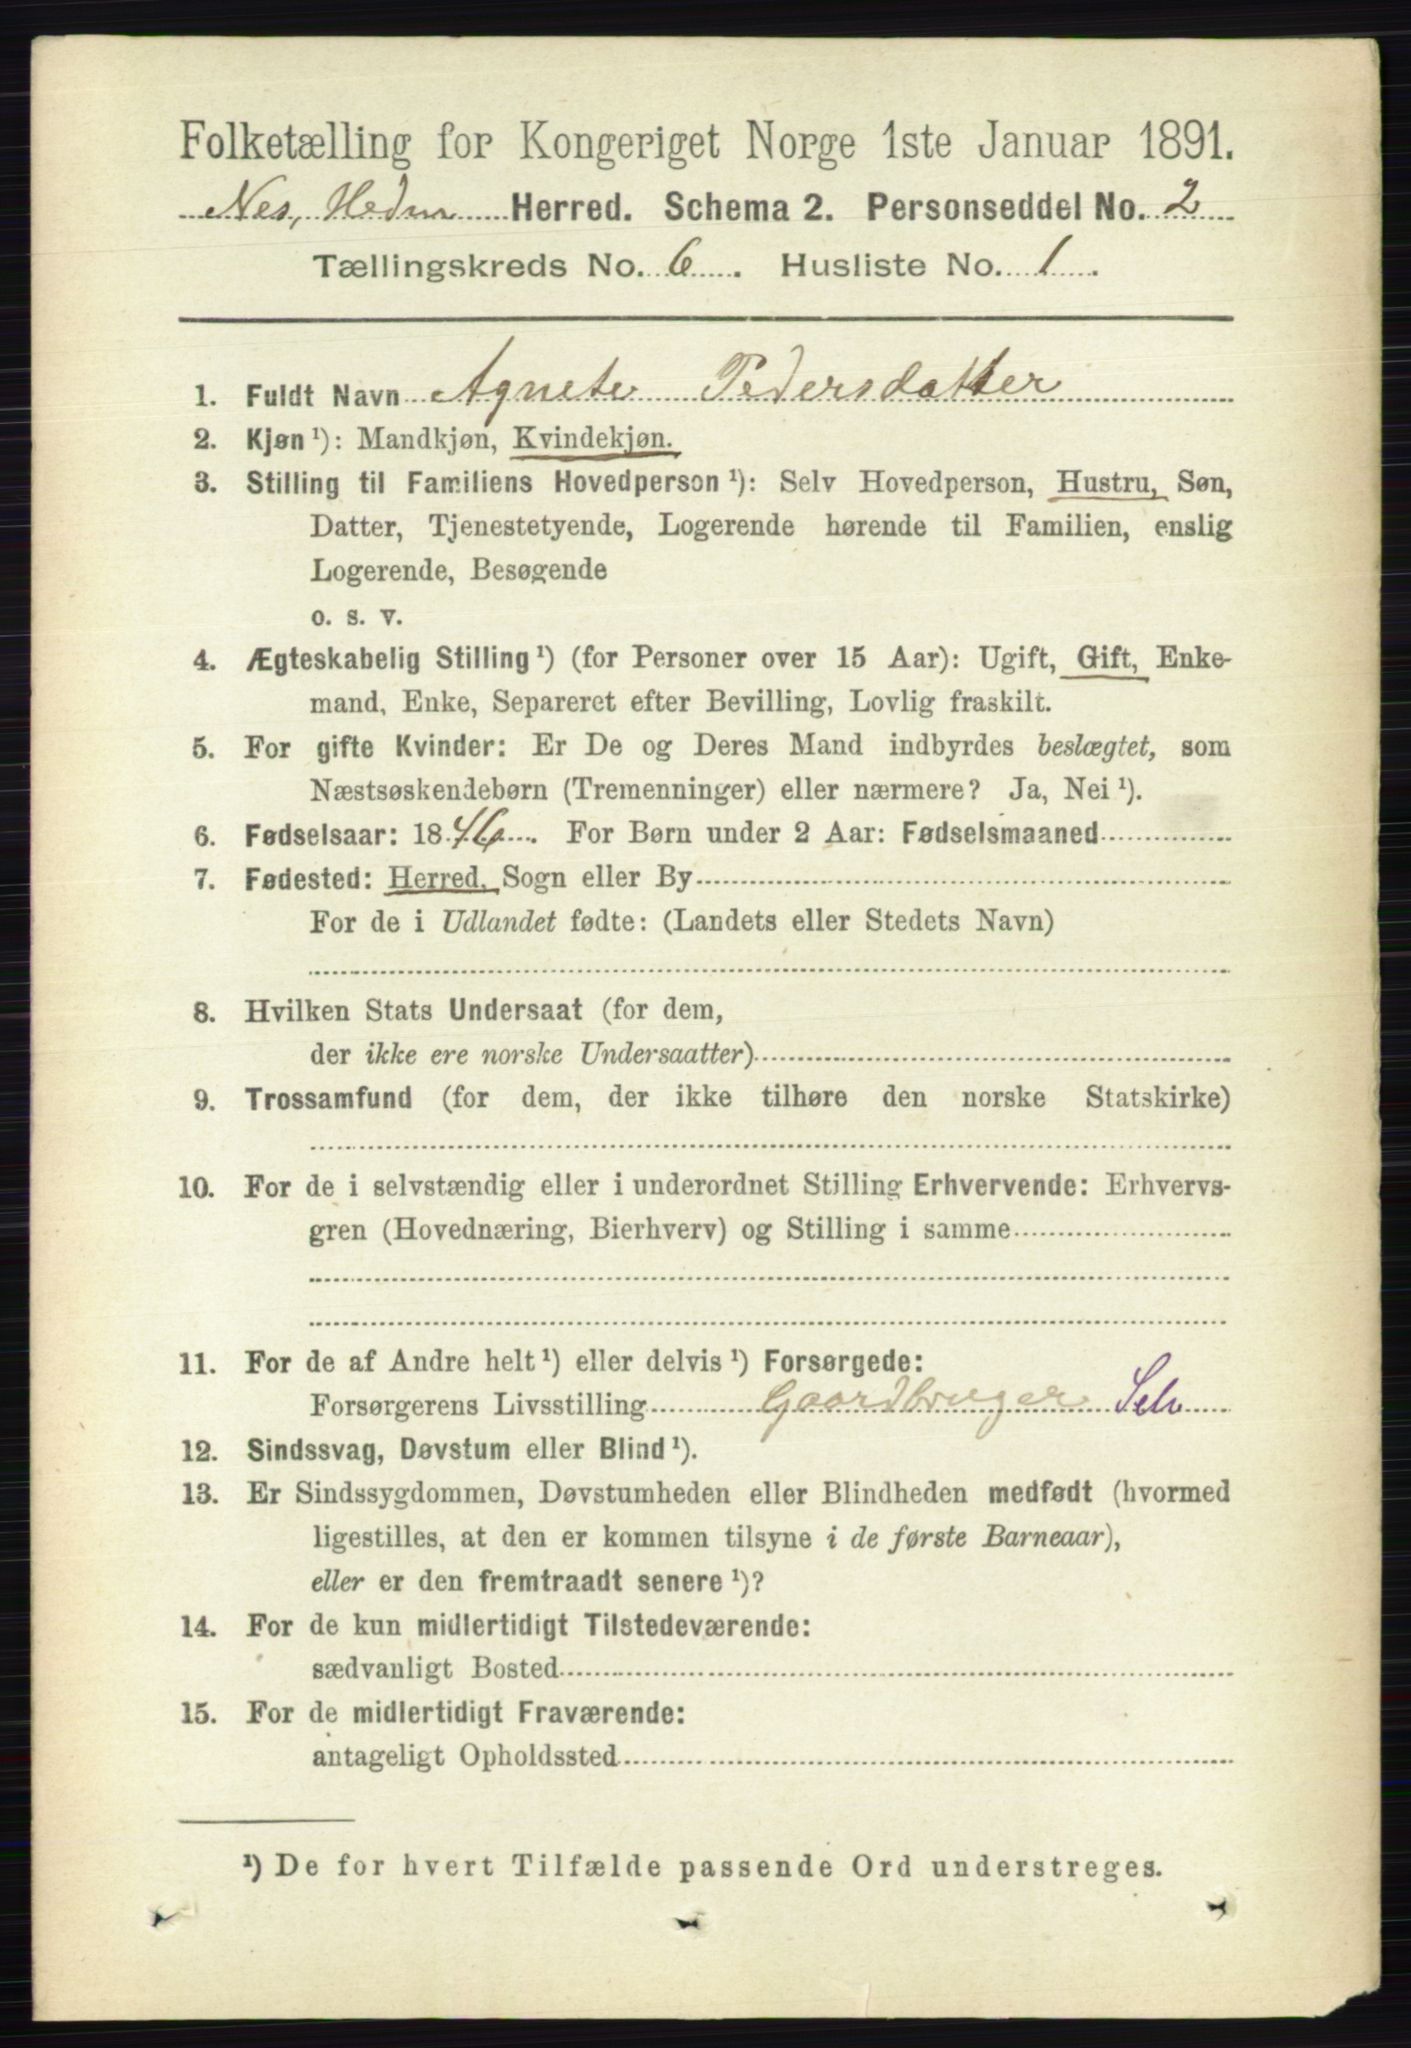 Folketælling for Kongeriget Norge 1ste Januar 1891.
Nes, Hedm Herred. Schema 2. Personseddel No. 2
Tællingskreds No. 6. Husliste No. 1.
1. Fuldt Navn Agnete Pedersdatter
2. Kjøn ¹): Mandkjøn, Kvindekjøn.
3. Stilling til Familiens Hovedperson ¹): Selv Hovedperson, Hustru, Søn,
Datter, Tjenestetyende, Logerende hørende til Familien, enslig
Logerende, Besøgende
o. s. v.
4. Ægteskabelig Stilling ¹) (for Personer over 15 Aar): Ugift, Gift, Enke-
mand, Enke, Separeret efter Bevilling, Lovlig fraskilt.
5. For gifte Kvinder: Er De og Deres Mand indbyrdes beslægtet, som
Næstsøskendebørn (Tremenninger) eller nærmere? Ja, Nei ¹).
6. Fødselsaar: 1846. For Børn under 2 Aar: Fødselsmaaned
7. Fødested: Herred, Sogn eller By
For de i Udlandet fødte: (Landets eller Stedets Navn)
8. Hvilken Stats Undersaat (for dem,
der ikke ere norske Undersaatter)
9. Trossamfund (for dem, der ikke tilhøre den norske Statskirke)
10. For de i selvstændig eller i underordnet Stilling Erhvervende: Erhvervs-
gren (Hovednæring, Bierhverv) og Stilling i samme
11. For de af Andre helt ¹) eller delvis ¹) Forsørgede:
Forsørgerens Livsstilling Gaardbruger Selv
12. Sindssvag, Døvstum eller Blind ¹).
13. Er Sindssygdommen, Døvstumheden eller Blindheden medfødt (hvormed
ligestilles, at den er kommen tilsyne i de første Barneaar),
eller er den fremtraadt senere ¹)?
14. For de kun midlertidigt Tilstedeværende:
sædvanligt Bosted
15. For de midlertidigt Fraværende:
antageligt Opholdssted
¹) De for hvert Tilfælde passende Ord understreges.